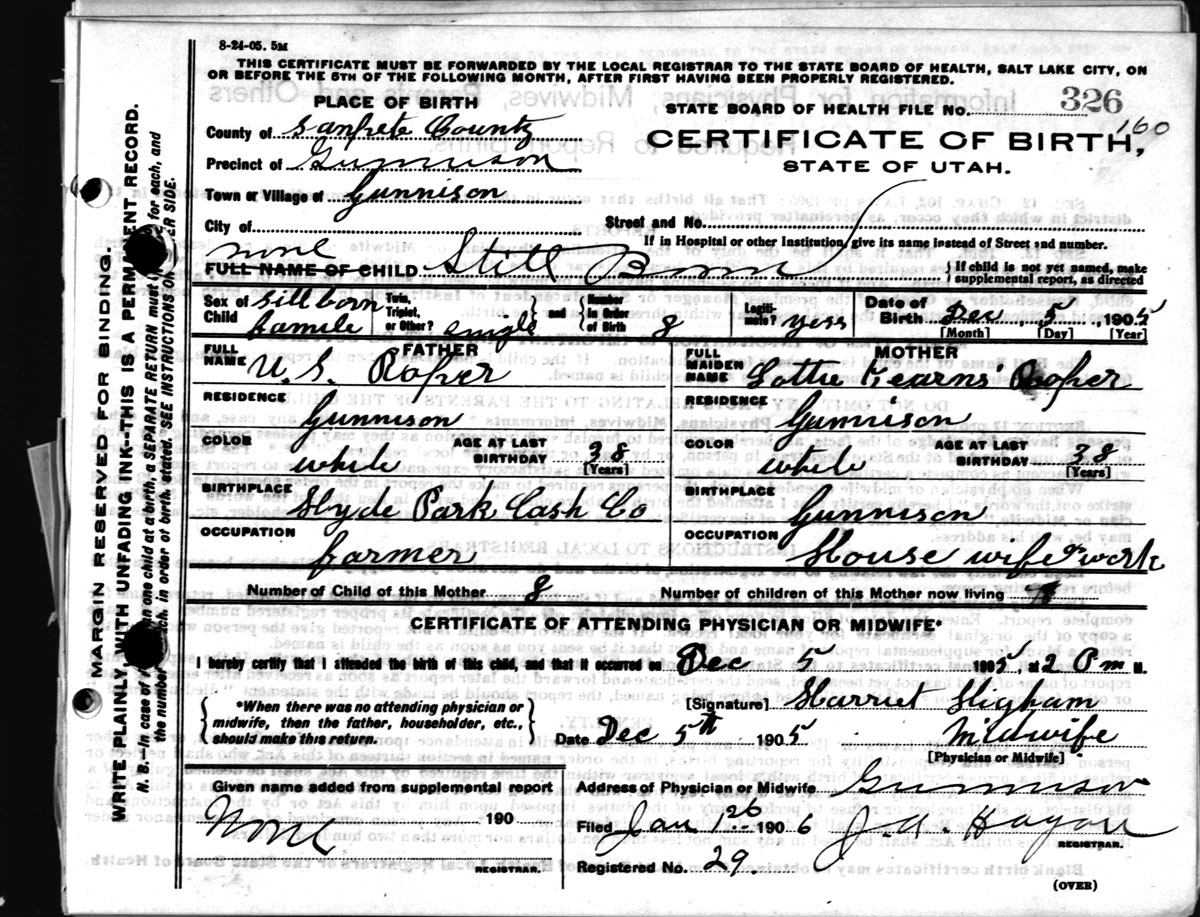 8-24-05. 5M
THIS CERTIFICATE MUST BE FORWARDED BY THE LOCAL REGISTRAR TO THE STATE BOARD OF HEALTH, SALT LAKE CITY, ON
OR BEFORE THE 5TH OF THE FOLLOWING MONTH, AFTER FIRST HAVING BEEN PROPERLY REGISTERED.
PLACE OF BIRTH
STATE BOARD OF HEALTH FILE No. 326
160
County of Sanpete County
CERTIFICATE OF BIRTH,
STATE OF UTAH.
Precinct of Gunnison
Town or Village of Gunnison
City of
Street and No.
If in Hospital or other Institution, give its name instead of Street and number.
none
FULL NAME OF CHILD Still Born
{If child is not yet named, make
supplemental report, as directed
Sex of Child sillborn famele
Twin, Triplet, or Other? single
and
Number in Order of Birth 8
Legiti-mate? yers
Date of Birth Dec 5 1905
[Month] [Day] [Year]
FATHER
FULL NAME U. S. Roper
RESIDENCE
Gunnison
COLOR white
AGE AT LAST BIRTHDAY 38
[Years]
BIRTHPLACE
Hyde Park Cash Co
OCCUPATION
farmer
MOTHER
FULL MAIDEN NAME Lottie Kearns Roper
RESIDENCE
Gunnison
COLOR while
AGE AT LAST BIRTHDAY 38
[Years]
BIRTHPLACE
Gunnison
OCCUPATION
House wife work
Number of Child of this Mother 8
Number of children of this Mother now living
CERTIFICATE OF ATTENDING PHYSICIAN OR MIDWIFE*
I hereby certify that I attended the birth of this child, and that it occurred on Dec 5 1905, at 2 P m M.
{*When there was no attending physician or
midwife, then the father, householder, etc.,
should make this return.}
[Signature] Harriet Higham
Date Dec 5th 1905 Midwife
[Physician or Midwife]
Given name added from supplemental report
190
None
REGISTRAR.
Address of Physician or Midwife Gunnison
Filed Jan 26 1906
REGISTRAR.
Registered No. 29.
(OVER)
MARGIN RESERVED FOR BINDING.
WRITE PLAINLY, WITH UNFADING INK--THIS IS A PERMANENT RECORD.
N. B.--In case of an one child at a birth, a SEPARATE RETURN must for each, and
the number ch. in order of birth stated. SEE INSTRUCTIONS ON ER SIDE.